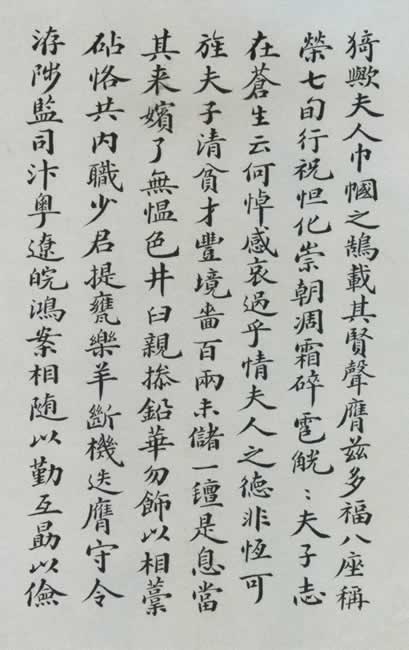 猗歟夫人巾幗之鵠載其賢聲膺兹多福八座稱
榮七旬行祝怛化崇朝凋霜碎雹觥〻夫子志
在蒼生云何悼感哀過乎情夫人之德非恆可
旌夫子清貧才豐境嗇百兩未儲一鐘是息當
其来嬪了無愠色井臼親搽鉛華勿飾以相藁
砧恪共内職少君提甕樂羊斷機迭膺守令
洊陟監司汴粤遼皖鴻案相随以勤互勗以儉